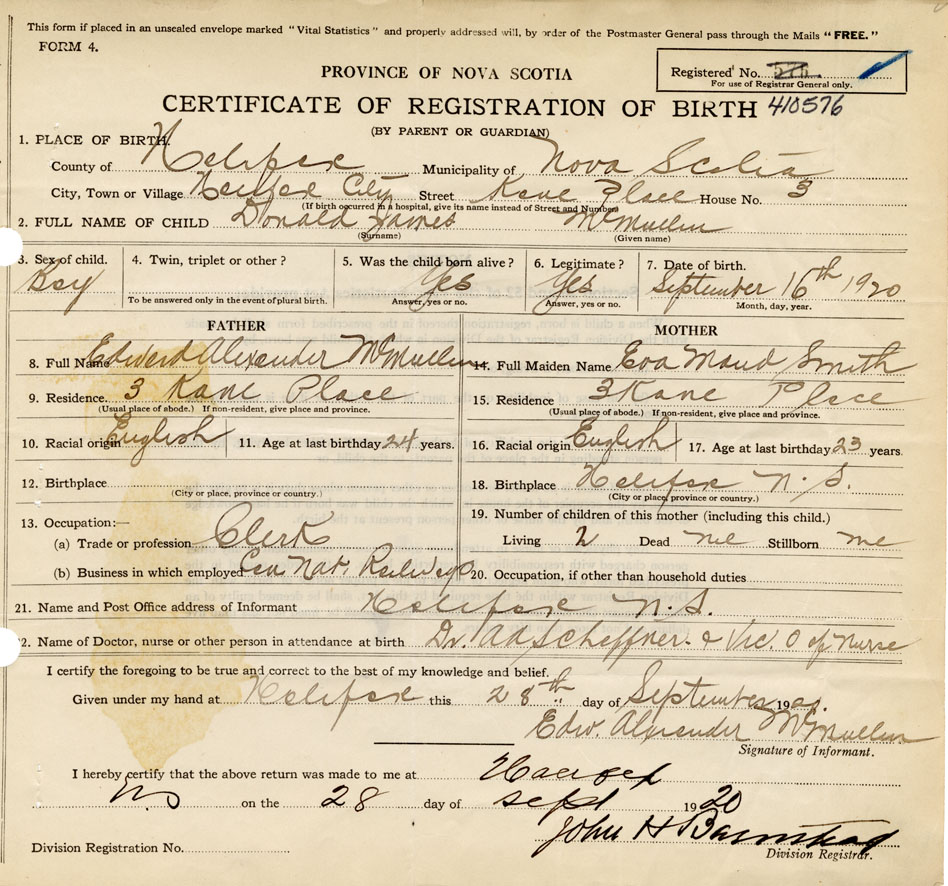 This form if placed in an unsealed envelope marked "Vital Statistics" and properly addressed will, by order of the Postmaster General pass through the Mails "FREE."
FORM 4.
Registered No.
For use of Registrar General only.
PROVINCE OF NOVA SCOTIA
CERTIFICATE OF REGISTRATION OF BIRTH 410576
(BY PARENT OR GUARDIAN)
1. PLACE OF BIRTH.
County of Halifax Municipality of Nova Scotia
City, Town or Village Halifax City Street Kane Place House No. 3
(If birth occurred in a hospital, give its name instead of Street and Number)
2. FULL NAME OF CHILD Donald James McMullin
(Surname) (Given name)
3. Sex of child. 4. Twin, triplet or other? 5. Was the child born alive? 6. Legitimate? 7. Date of birth.
Boy Yes Yes September 16th 1920
To be answered only in the event of plural birth. Answer, yes or no. Answer, yes or no. Month, day, year.
FATHER MOTHER
8. Full Name Edward Alexander McMullin 14. Full Maiden Name Eva Maud Smith
9. Residence. 3 Kane Place 15. Residence 3 Kane Place
(Usual place of abode.) If non-resident, give place and province. (Usual place of abode.) If non-resident, give place and province.
10. Racial origin English 11. Age at last birthday 24 years. 16. Racial origin English 17. Age at last birthday 23 years.
12. Birthplace 18. Birthplace Halifax N.S.
(City or place, province or country.) (City or place, province or country.)
13. Occupation:— 19. Number of children of this mother (including this child.)
(a) Trade or profession Clerk Living 2 Dead nil Stillborn
(b) Business in which employed Can Nat. Railways 20. Occupation, if other than household duties
21. Name and Post Office address of Informant Halifax N.S.
2. Name of Doctor, nurse or other person in attendance at birth Dr. & Vic. O of Nurse
I certify the foregoing to be true and correct to the best of my knowledge and belief.
Given under my hand at Halifax this 28th day of September 19
Edw. Alexander McMullin
Signature of Informant.
I hereby certify that the above return was made to me at Halifax
NS on the 28 day of Sept 1920
John H Barnstead
Division Registrar.
Division Registration No.